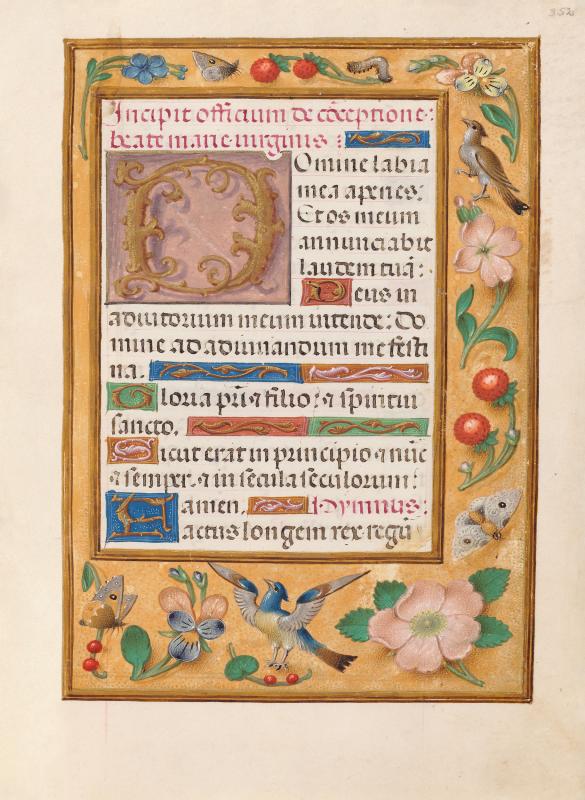 352
Incipit officium de cõceptione:
beate marie virginis:
Domine labia
mea aperies:
Et os meum
annunciabit
laudem tuã:
Deus in
adiutorium meum intende: Do
mine ad adiuuandum me festi
na.
Gloria pr̃i ⁊ filio: ⁊ spiritui
sancto.
Sicut erat in principio ⁊ nũc
⁊ semper. ⁊ in secula seculorum:
amen. Hymnus: